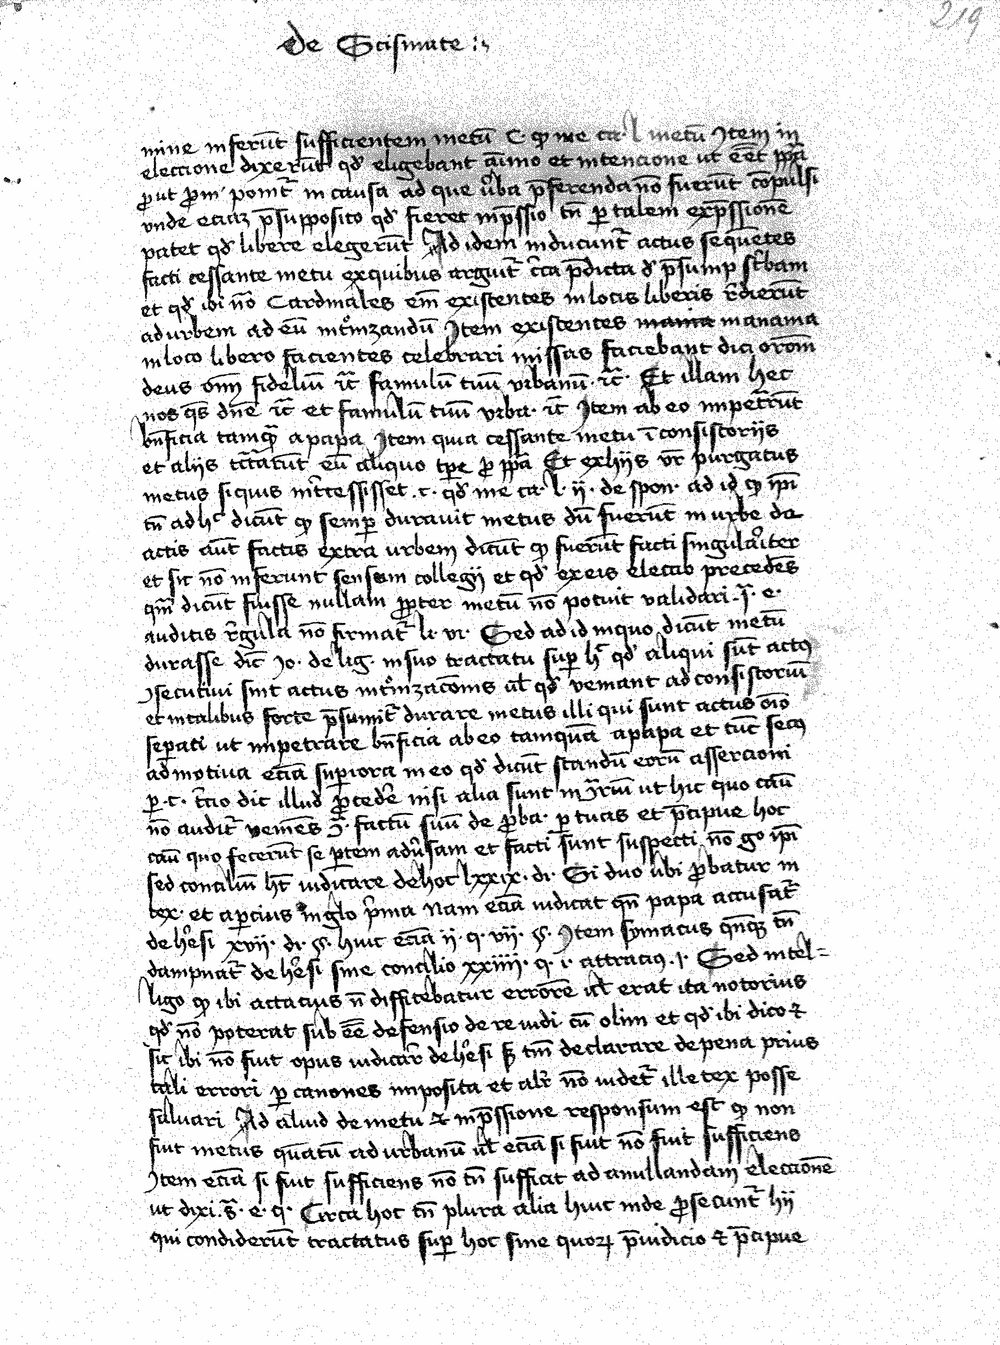 219
De Scismate :~
mine inferūt sufficientem metū C. qp me ca. l metū Itē in
eleccione dixerūt qd' eligebant aīmo et intencione ut eēt ppā
put pm' ponit' in causa ad que v'ba p̄ferenda nō fuerūt cōpulsi
vnde eciaz p̄supposito qd' fieret inp̄ssio tn̄ p talem exp̄ssionē
patet qd' libere elegerūt Ad idem inducunt' actus sequētes
facti cessante metu ex quibus arguit' c̄ca p̄dicta d' p̄sump
et qd' ibi nō Cardinales em̄ existentes in locis liberis r'dierūt
ad urbem ad eū int'nizandū Item existentes manama
in loco libero facientes celebrari missas faciebant dici orōm
deus om̄ fideliū rc̄ famulū tuū vrbanū rc̄. Et illam hec
nos qs̄ dn̄e rc̄ et famulū tuū vrba. rc̄ Item ab eo impet'rūt
bn̄ficia tamq̄ a papa Item quia cessante metu ī consistoriis
et aliis tc̄tarūt eū aliquo tp̄e p ppā Et ex hiis vr̄ purgatus
metus si quis int'cessisset .c. qd' me ca. l. ij. de spon. ad id qp ip̄i
tn̄ ad hc̄ dicūt qp semp duravit metus dū fuerūt in urbe de
actis aut̄ factis extra urbem dicūt qp fuerūt facti singulariter
et sic nō inferunt sensum collegij et qd' ex eis electio precedēs
qm̄ dicūt fuisse nullam ppter metū nō potuit validari .j̄. e.
auditis r'gula nō firmat' li. vi. Sed ad id in quo dicūt metū
durasse dic̄ Jo. de lig. in suo tractatu sup hc̄ qd' aliqui sūt actus
ɔsecutivi sint actus int'nizacōnis ul' qd' veniant ad consistoriū
et in talibus forte p̄sumit' durare metus illi qui sunt actus oīo
sepati ut impetrare bn̄ficia ab eo tamquā a papa et tūc secus
ad motiva eciā supiora in eo qd' dicūt standū eorū assercioni
p .c. t'cio dic̄ illud pcede nisi alia sunt in ɔriū ut hic quo caū
nō audit' veniēs ɔ̄. factū suū de pba. p tuas et p̄cipue hoc
caū quo fecerūt se ptem adv'sam et facti sunt suspecti nō go ip̄i
sed conciliū ht̄ iudicare de hoc lxxix. di. Si duo ubi pbatur in
tex. et apcius in glo p'ma Nam eciā iudicat qn̄ papa accusat'
de h'esi xvii. di. §. huic eciā ij. q. vii. §. Item symacus qn̄qz tn̄
dampnat' de h'esi sine concilio xxiiii. q. i. attracius .j. Sed intel=
ligo qp ibi actacius n̄ diffitebatur errorē ul' erat ita notorius
qd' nō poterat sub eē defensio de re iudi. cū olim et qd' ibi dico et
sic ibi nō fuit opus iudicar' de h'esi sz tm̄ declarare de pena prius
tali errori p canones imposita et alr' nō videt' ille tex posse
salvari Ad aliud de metu et inp̄ssione responsum est qp non
fuit metus quātū ad urbanū ul' eciā si fuit nō fuit sufficiens
Item eciā si fuit sufficiens nō tn̄ sufficit ad anullandam eleccionē
ut dixi .s̄. e. q. Circa hoc tn̄ plura alia huic inde psecunt' hij
qui condiderūt tractatus sup hoc sine quorz p̄iudicio et p̄cipue